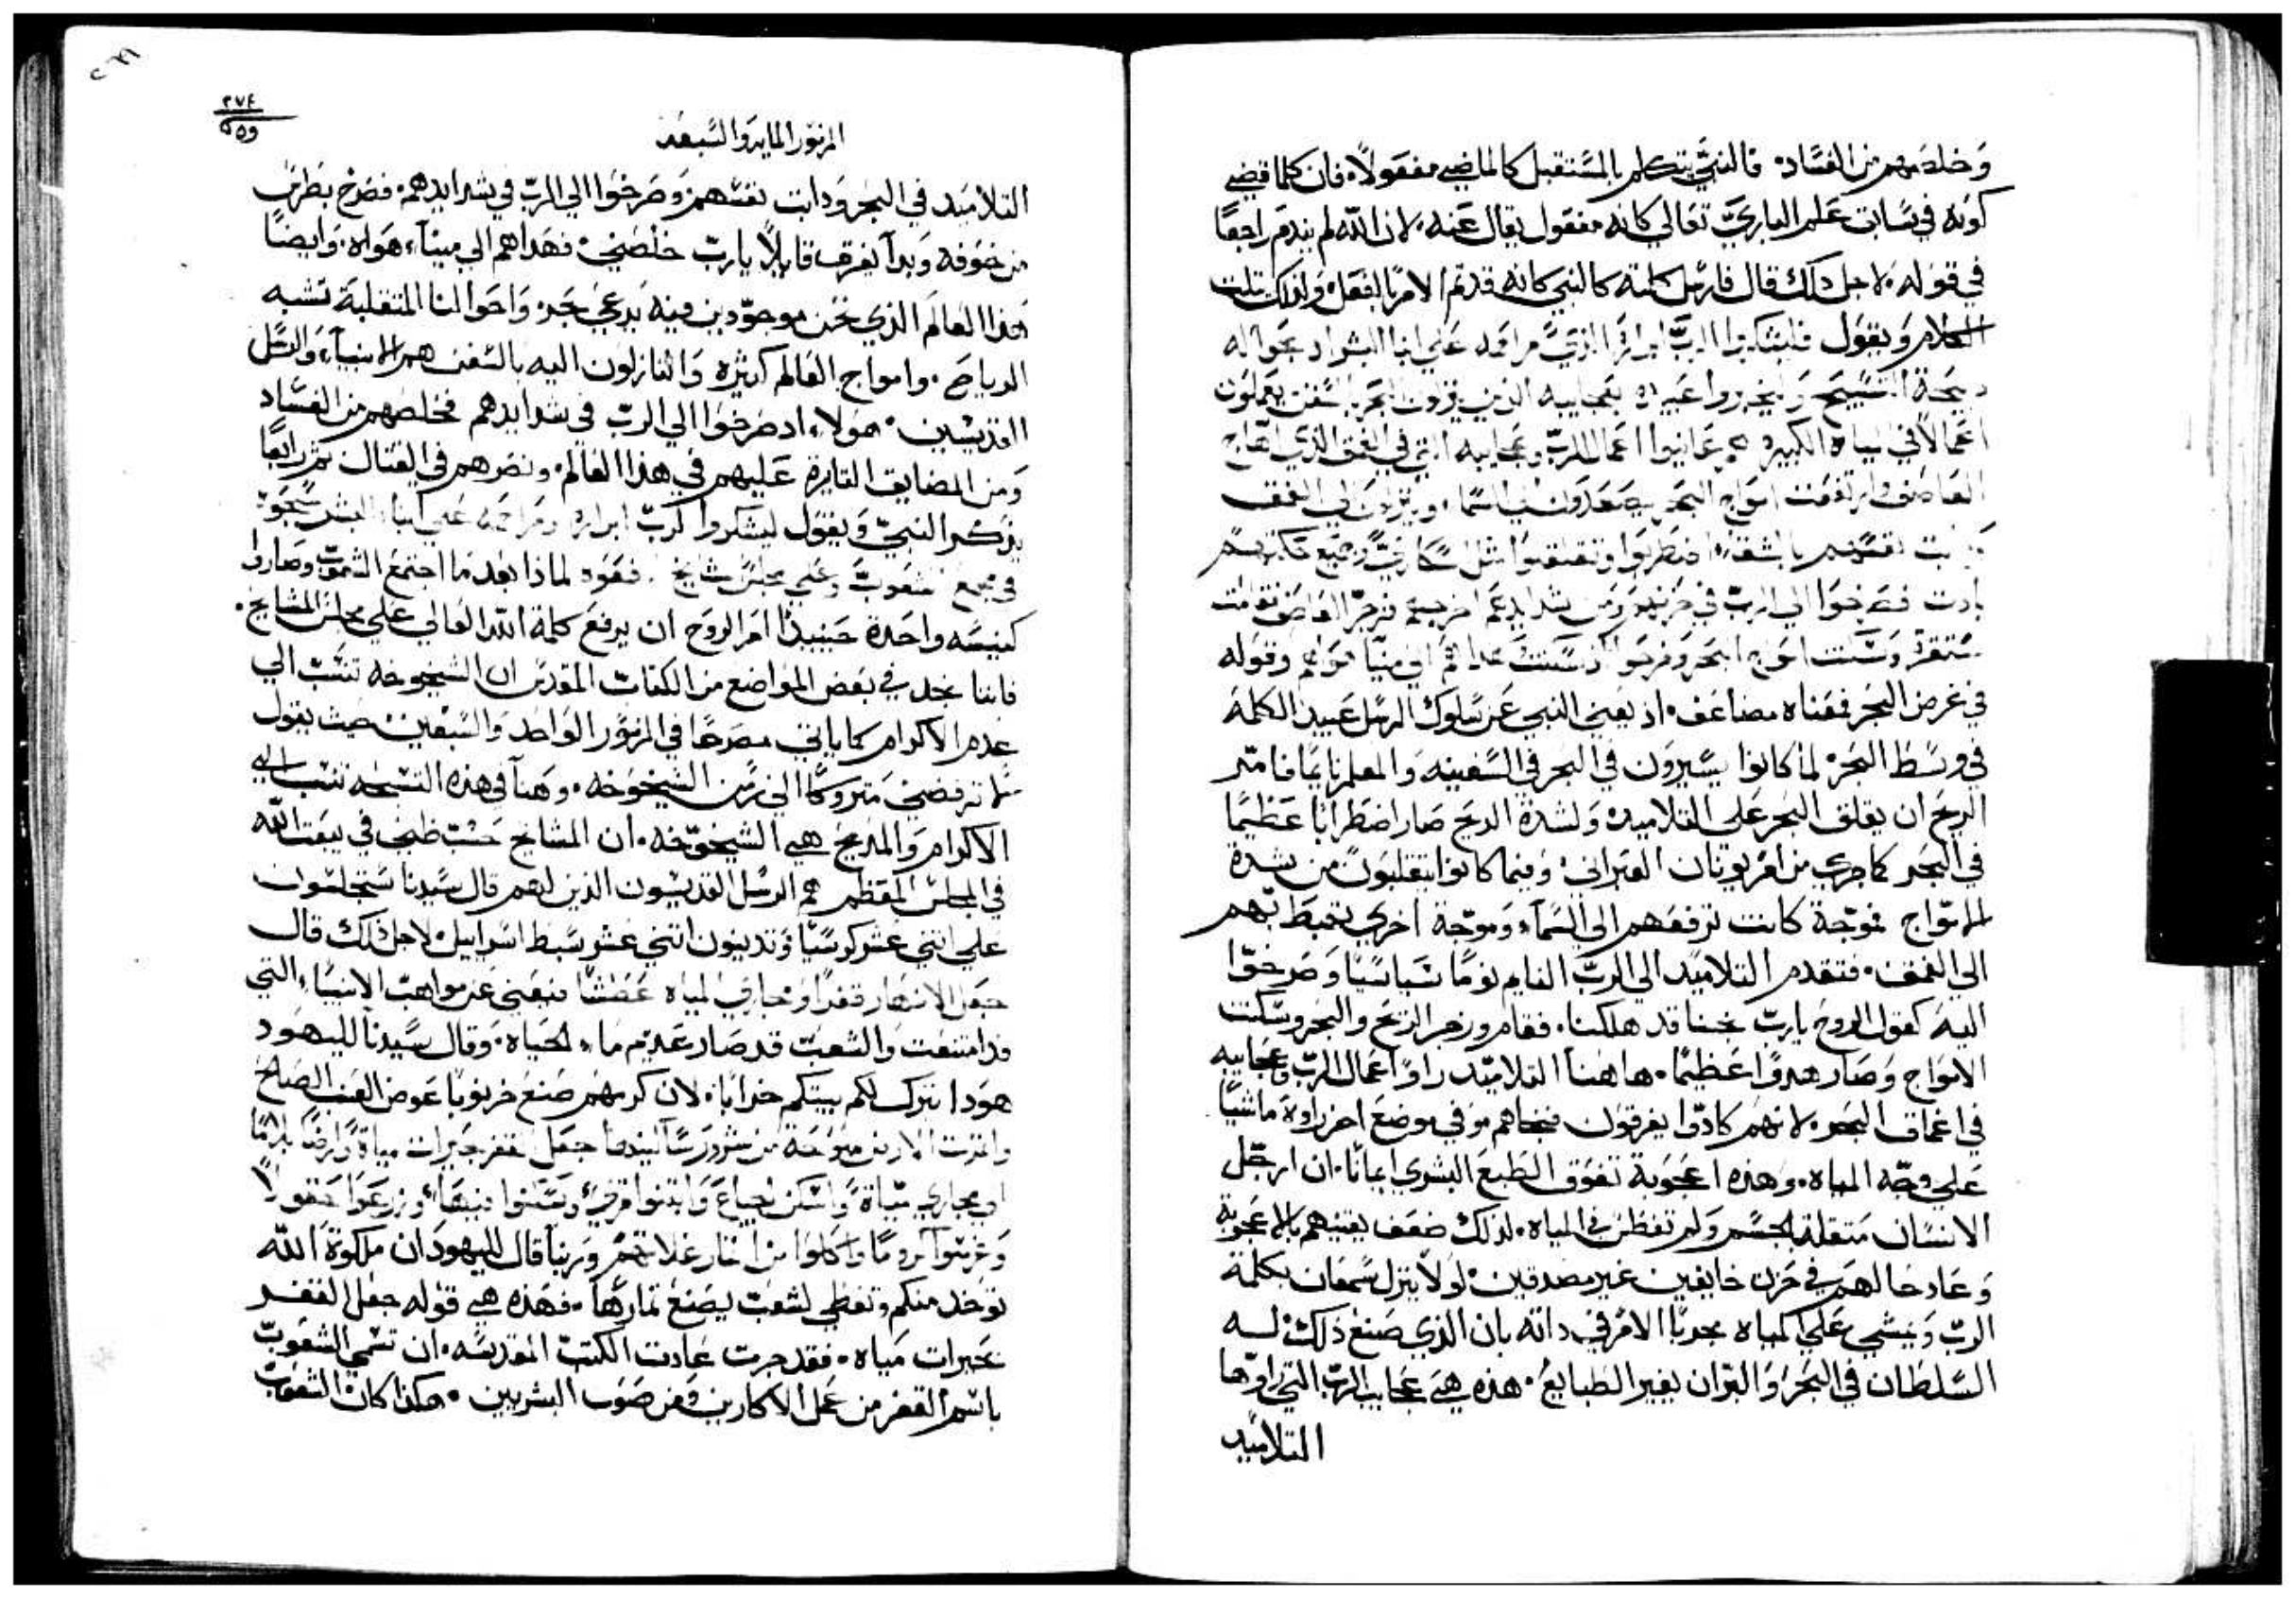 وَخلصَهم من الفسَاد. فالنبيّ يتكلم بالمسَتقبل كالماضي مفعَولاً، فان كلما قضي
كونه في سَابق عَلم الباريَ تعَالي كانه مفعَول يقال عَنه، لان الله لم يندم راجعًا
في قوله، لاجل ذلك قال فارسَل كلمته كالنبي كانه قد تم الامر بالفعَل، ولذلك يثلث
الكلام وَيقول فليشكروا الربَّ ابراره الذيَ مراحمه علي ابنا البشر اد بحواله
ذبيحة التسَبيح وَليخبروا عَبيده بعَجايبه الذين ينزلون البحر بالسَفن يعَملون
اعَمالاً في المياه الكبيره هم عَاينوا اعَمال الربّ وعَجايبه التي في العَمق الذي اهاج
العَاصف وارتفعَت امواج البحَر يصعَدون الي السَما. وينزلون الي العَمق
وَذابت نفسَهم بالشقا، اضطربوا وتقلقلوا مثل السَكارَي وجميع حكمتهم
بادت فصَرخوَا الي الربّ في حزنهم وَمن شدايدهم اخرجهم فزجر العاصف فقامت
مستقرة وَسَكتت امواج البحَر وفرحوا اذ سَكتت هداهم الي مينآ هواهم وقوله
في عَرض البحَر فمعَناه مضاعَف. اذ يعَني النبي عَن سَلوك الرسَل عَبيد الكلمة
في وسَط البحَر لما كانوا يسَيرون في البحر في السَفينه وَالمعلم نايمًا فامر
الريح ان يقلق البحَر عَلي التلاميد، وَلشدة الريح صَار اضطرابًا عَظيمًا
في البحَر كما جري من افريوتان العَبراني، وَفيما كانوا يتقلبون من شدة
الامواج فموَجة كانت ترفعَهم الي السَمآ، وَموجة اخري تهبط بهم
الي العَمق. فتقدم التلاميد الي الربّ النايم نومًا سَباسَيًا وَصَرخوّا
اليه كقول الروح ياربّ نجنا قد هلكنا. فقام وزجر الريحَ والبحر وسَكتت
الامَواج وَصَار هدوًا عَظيمًا. هاهنا التلاميد راوا اعَمال الربّ وعَجايبه
في اعَماق البحَر. لانهم كادوّا يغرقون فنجاهم وَفي موضع اخر راوه ماشيًا
عَلي وجه المياه. وَهذه اعَجوبة تفوَق الطبعَ البشري ايمانًا. ان ارجل
الانسَان مثقلة بالجسَم وَلم تغطس في المياه. لذلك ضعَف يقينهم بالاعجوبة
وَعَاد حالهم في حَزن خايفين غير مصَدقين، لولا ينزل سَمعَان بكلمة
الربّ وَيمشي عَلي المياه مجربًا الامر في ذاته بان الذي صَنعَ ذلك، له
السَلطان في البحَر وَالبرّ ان يغير الطبايعَ. هذه هي عَجايب الربّ التي راوهّا
التلاميد
٢٧٤
المزمور المايه والسَبعَه
التلاميَد في البحَر وَذابت نفسَهم وَصَرخوَا الي الربّ في شدايدهم. فصَرخ بطرس
من خوَفه وَبدآ يغرق قايلاً ياربّ خلصَني. فهداهم الي مينآء هَواه. وَايضًا
هَذا العَالمَ الذي نحَن موجوّدين فيه يدعَي بحَر، وَاحَوالنا المتقلبة تشبه
الرياحَ. وامواج العَالم كثيره وَالنازلون اليه بالسَفن هم الانبيآء وَالرسَل
القديسَين. هَولاء اذ صَرخوَا الي الربّ في شدايدهم فخلصَهم من الفسَاد
وَمن المضايق الثايرة عَليهم في هذا العَالم. ونصَرهم في القتال ثم رابعًا
يذكر النبيّ وَيقوَل ليشكروا لربّ ابراره وَمراحمه عَلي ابناء البشر يمجدوَه
في مجمع شعَوب وعلي مجلس مشايخ. فيعَود لماذا بعَد مَا اجتمعَ الشعوبّ وصَاروا
كنيسَه واحَدة حَينيذًا امر الروح ان يرفعَ كلمة الله العَالي عَلي مجلسَ المشايخ.
فاننا نجد في بعَض المواضعَ من الكتاب المقدسَ ان الشيخوخه تنسَب الي
عدم الاكرام كما ياتي مصَرحًا في المزمور الواحَد وَالسَبعَين، حيث يقول
لا ترفضني مَتروكًا الي زمن الشيخوخه. وهَنآ في هذه التسَبحَه تنسَب الي
الاكرام وَالمديح هي الشيخوخَه. ان المشايخ حَسَب ظني في بيعَت الله
في المجلسَ المعَظم هم الرسَل القديسَون الذين لهم قال سَيدنا سَتجلسَون
علي اثني عَشر كرسَيًا وَتدينون اثني عَشر سَبط اسَراييل، لاجل ذلك قال
جعَل الانهَار قفرًا وَمجاري المياه عَطشًا فيعَني عَن مواهَب الانبياء التي
قد امتنعَت وَالشعَب قد صَار عَديم ماء الحَياه. وَقال سَيدنا لليهود
هوذا يترك لكم بيتكم خرابًا، لان كرمهم صَنعَ خرنوبًا عَوض العنب الصَالح
واثمرت الارض ملوحَة من شرور سَاكنيها جعَل القفر بحَيرات مياة وَارضًا بلا مًا
او مجاري ميَاة وَاسَكن الجياع وَابتنوا قري وَسَكنوا فيها، وزرعَوا حَقولاً
وَغرسَوا كرومًا وَاكلوا من اثمار غلاتهم وَربنا قال لليهود ان ملكوة الله
توخذ منكم وتعَطي لشعَب ليصَنعَ ثمارهَا. فهَذه هي قوَله جعَل القفر
بحَيرات مَياه. فقد جرت عَادت الكتب المقدسَه، ان تسَمي الشعَوبّ
باسَم القفر من عَمل الاكارين وَمن صَوب البشريين. هكذا كان الشعَوب